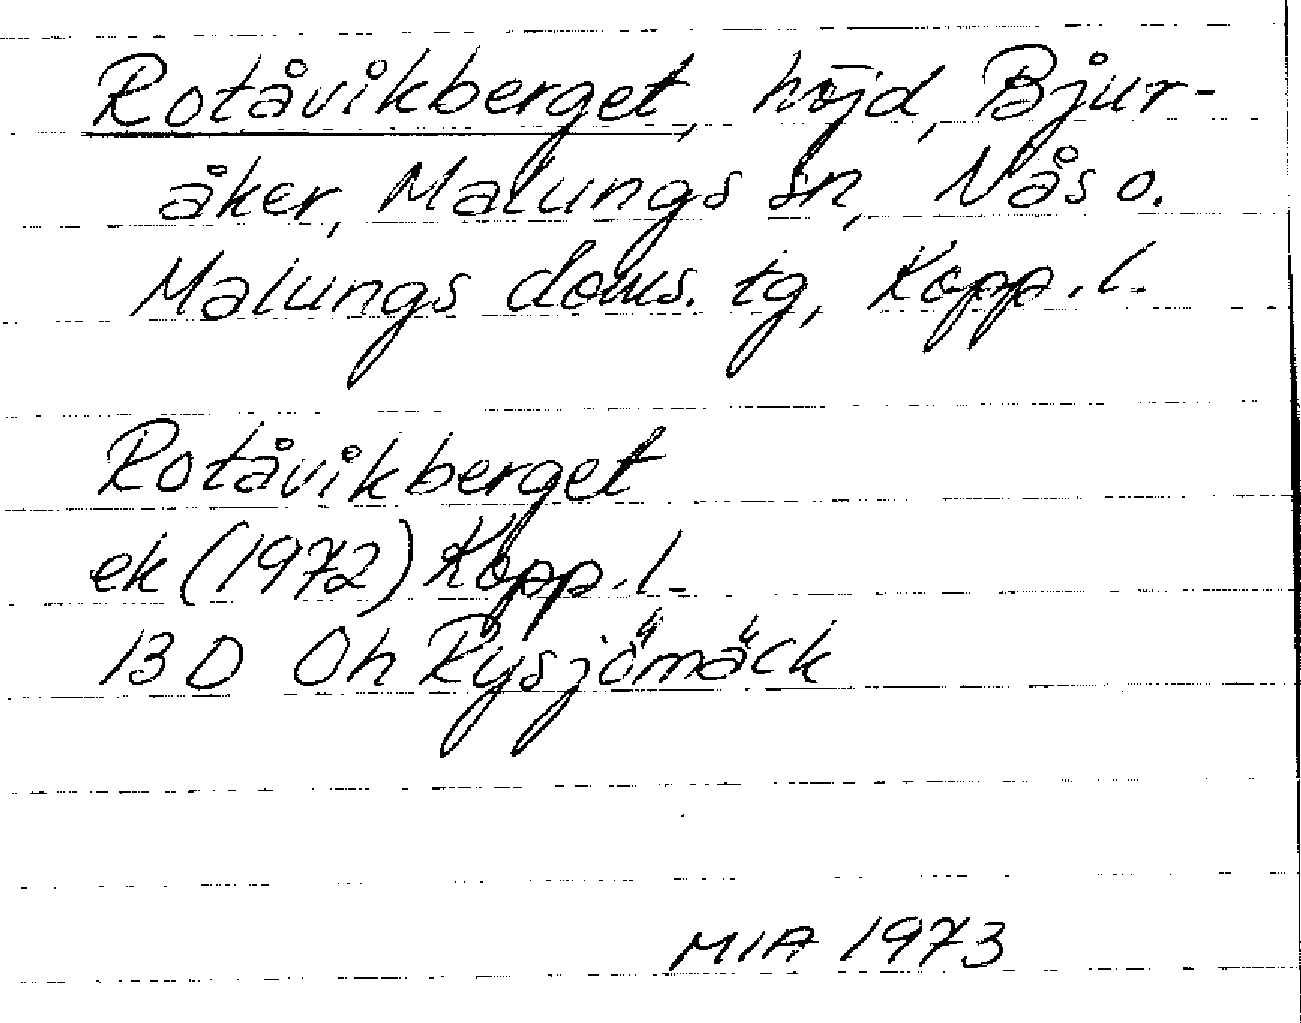 Rotåvikberget, höjd, Bjur-
åker, Malungs sn, Nås o.
Malungs doms. tg, Kopp.l.
Rotåvikberget
ek (1972) Kopp.l.
13 D 0h Rysjömäck
MIA 1973